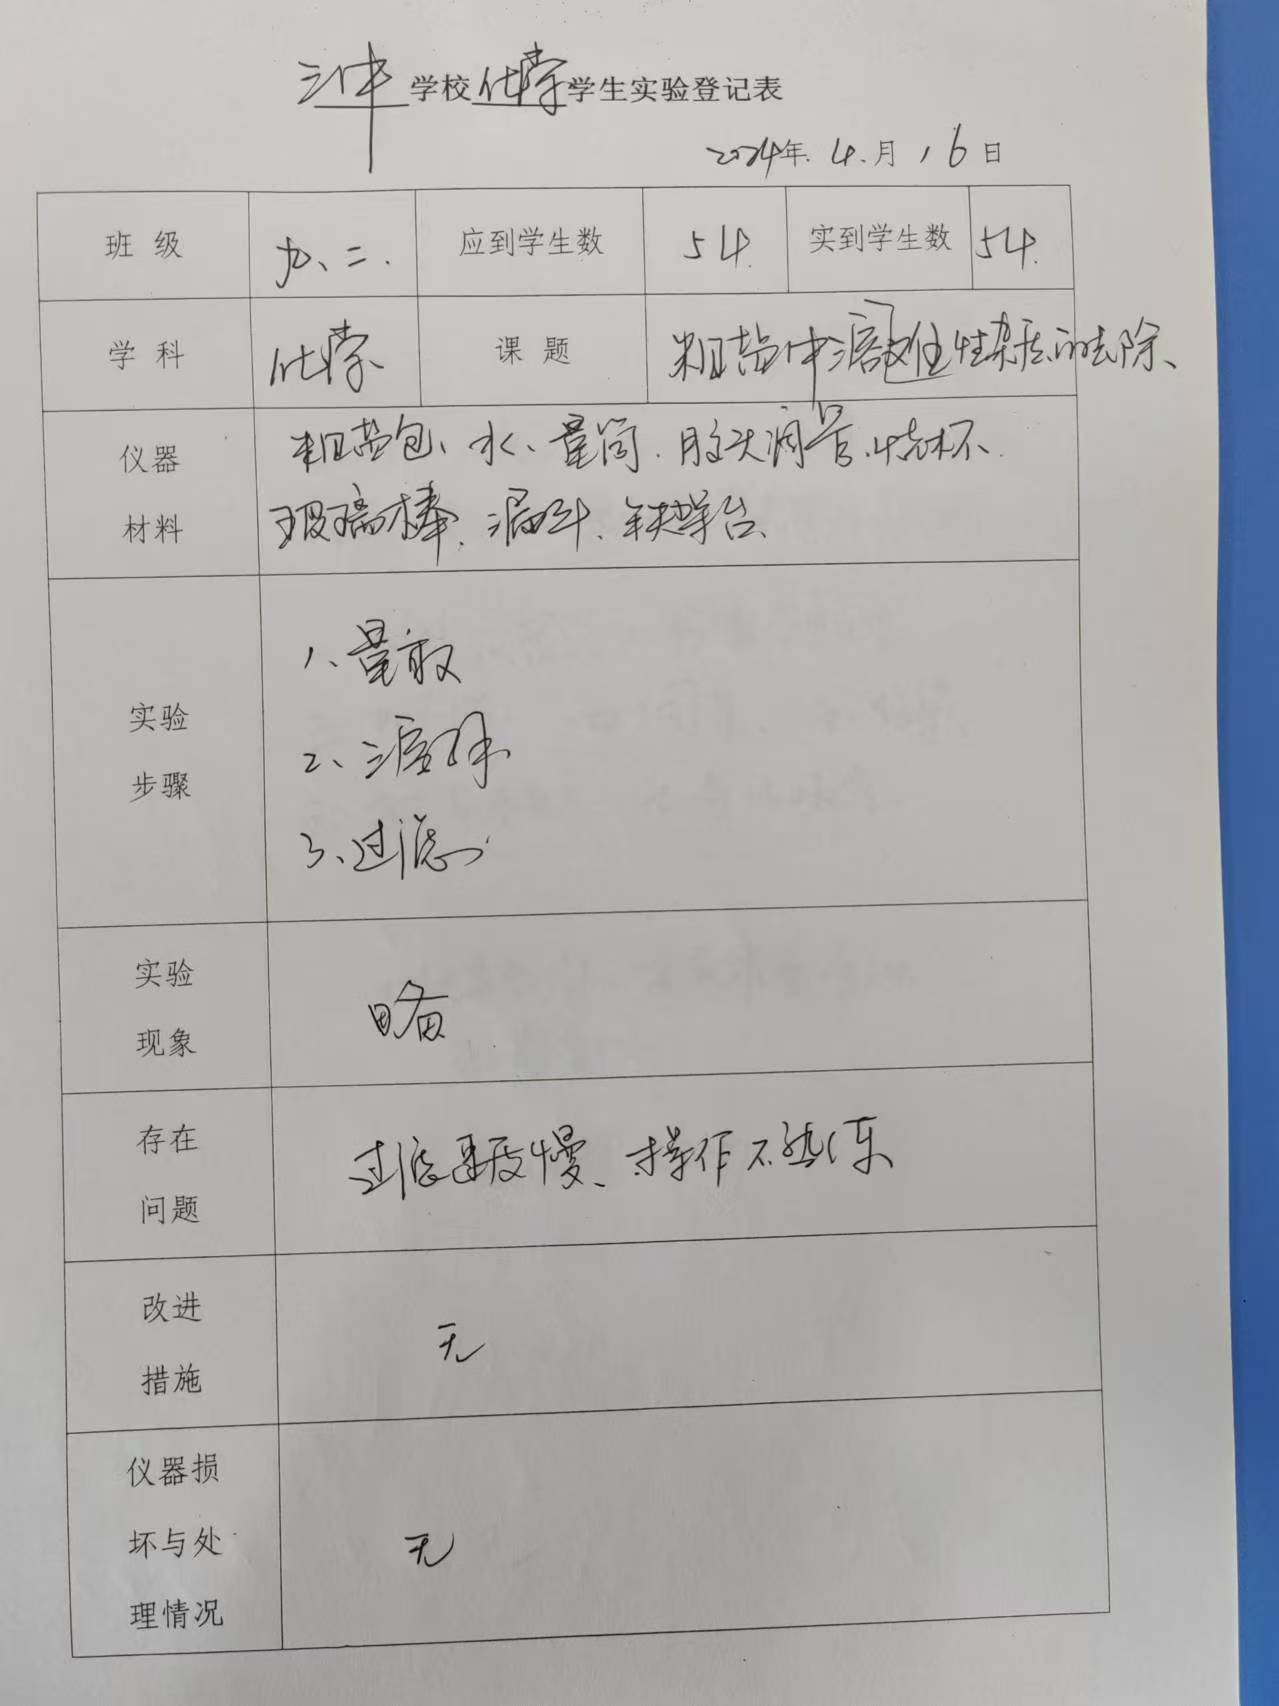 江中学校化学学生实验登记表
2024年.4.月16日
班级 九、二. 应到学生数 54. 实到学生数 54.
学科 化学 课题 粗盐中难溶性杂质的去除、
仪器材料 粗盐包、水、量筒.胶头滴管.烧杯.
玻璃棒.漏斗.铁架台、
实验步骤
1、量取
2、溶解
3、过滤
实验现象 略
存在问题 过滤速度慢、操作不熟练
改进措施 无
仪器损坏与处理情况 无